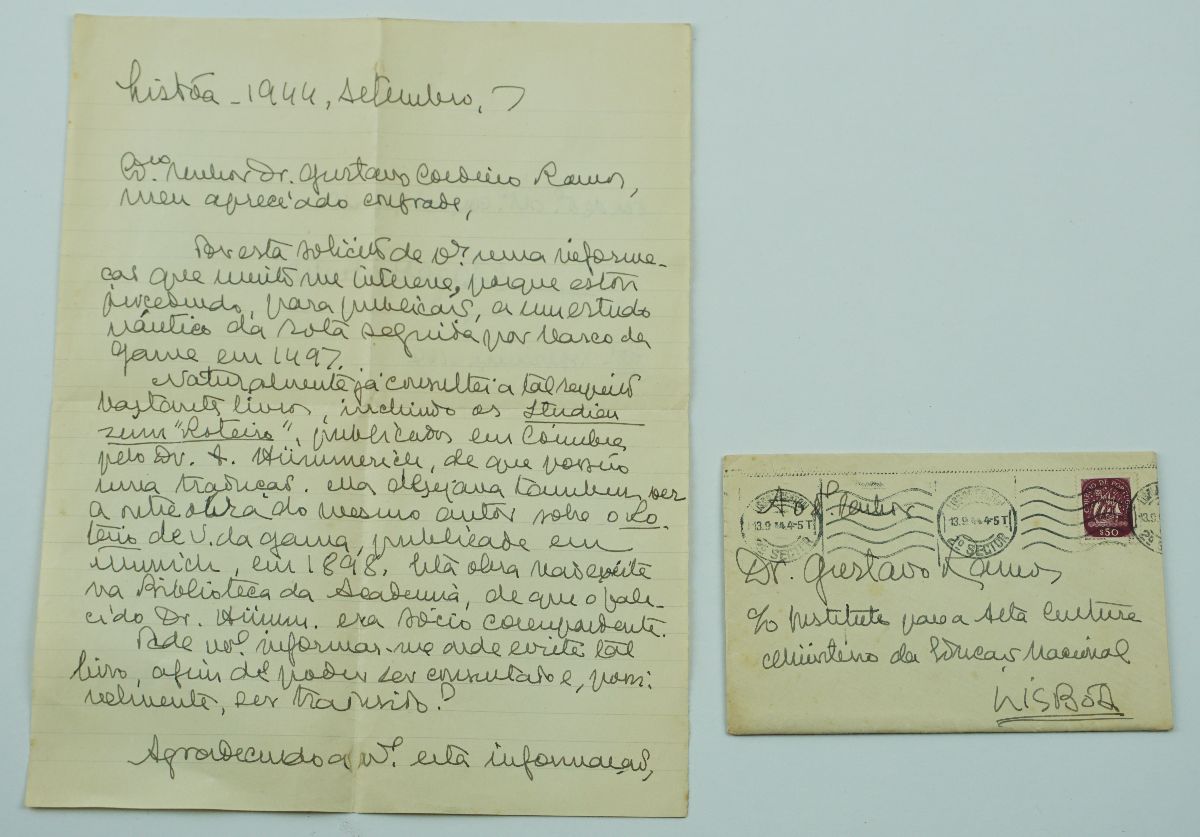 Lisbôa - 1944, setembro, 7
Exmo. senhor Dr. Gustavo Cordeiro Ramos,
meu apreciado confrade,
Por esta solicito de V. uma informa-
ção que muito me interessa, porque estou
procedendo, para publicação, a um estudo
náutico da rota seguida por Vasco da
Gama em 1497.
Naturalmente já consultei a tal respeito
bastantes livros, incluindo os Studien
zum "Roteiro", publicados em Coimbra,
pelo Dr. A. Hümmerich, de que possúo
uma tradução. Mas desejava tambem ver
a outra obra do mesmo autor sobre o Ro-
teiro de V. da Gama, publicada em
Munich, em 1898. Esta obra não existe
na Biblioteca da Academia, de que o fale-
cido Dr. Hümm. era sócio correspondente.
Póde V. informar-me onde existe tal
livro, afim de poder ser consultado e, possi-
velmente, ser traduzido?
Agradecendo a V. esta informação,
13.9.44.4-5T
2º SECTOR
13.9.44.4-5T
2º SECTOR
CORREIO DE PORTUGAL
$50
13.9
Ao Sr. Senhor
Dr. Gustavo Ramos
c/o Instituto para a Alta Cultura
Ministério da Educação Nacional
LISBÔA